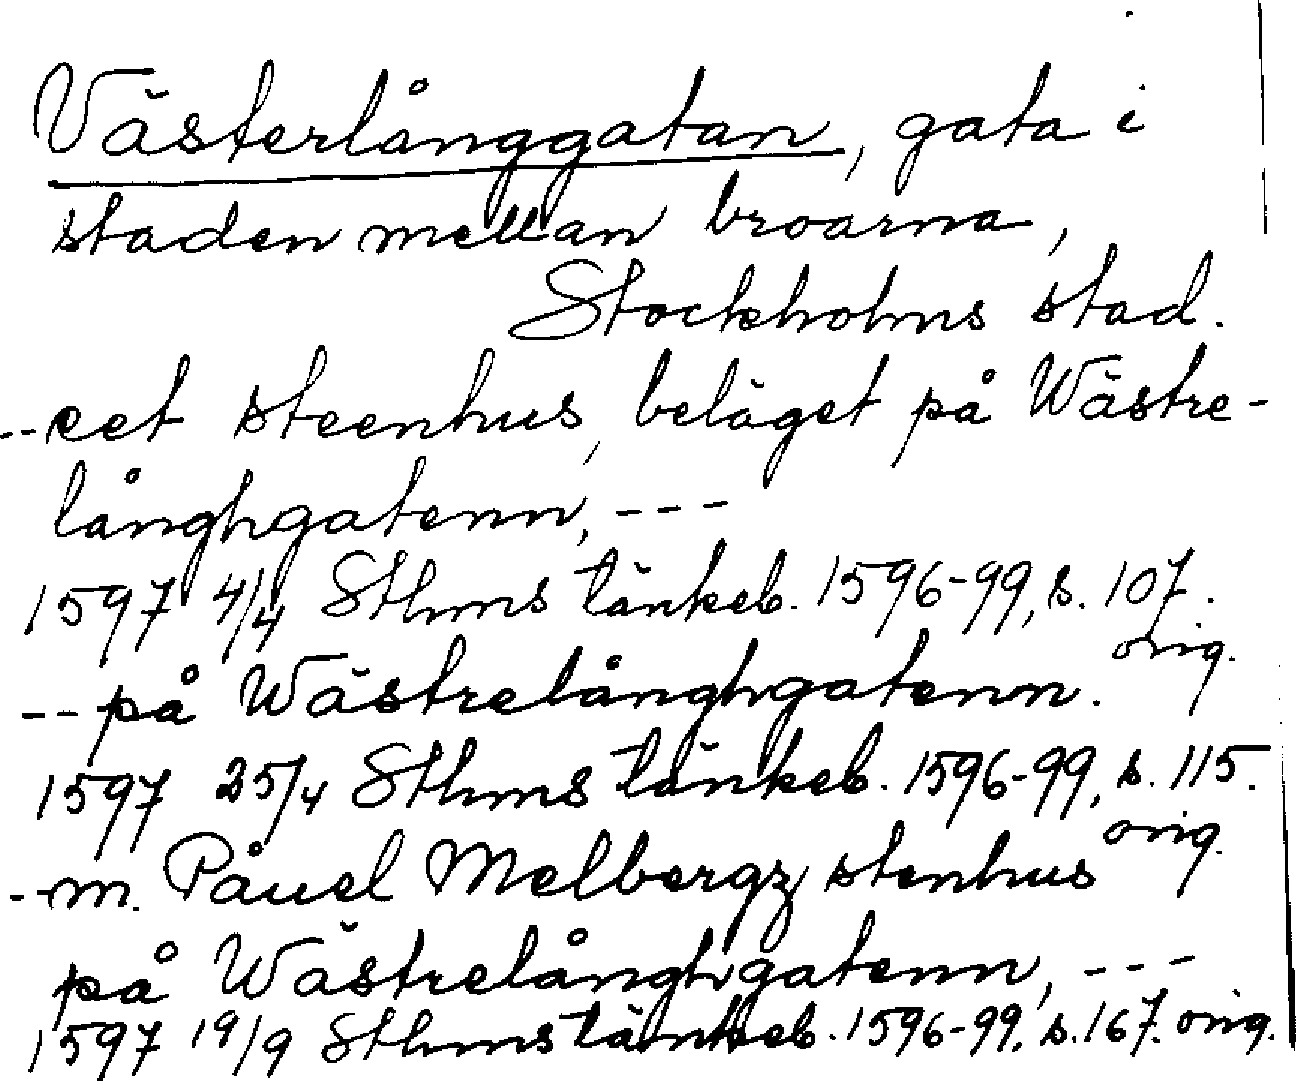 Västerlånggatan, gata i
staden mellan broarna,
Stockholms stad.
--eet steenhus, beläget på Wästre-
långhgatenn, ---
1597 4/4 Sthms tänkeb. 1596-99, s. 107.
orig.
-- på Wästrelånghgatenn.
1597 25/4 Sthms tänkeb. 1596-99, s. 115.
orig.
--m. Påuel Melbergz stenhus
på Wästrelånghgatenn, ---
1597 19/9 Sthms tänkeb. 1596-99, s. 167. orig.